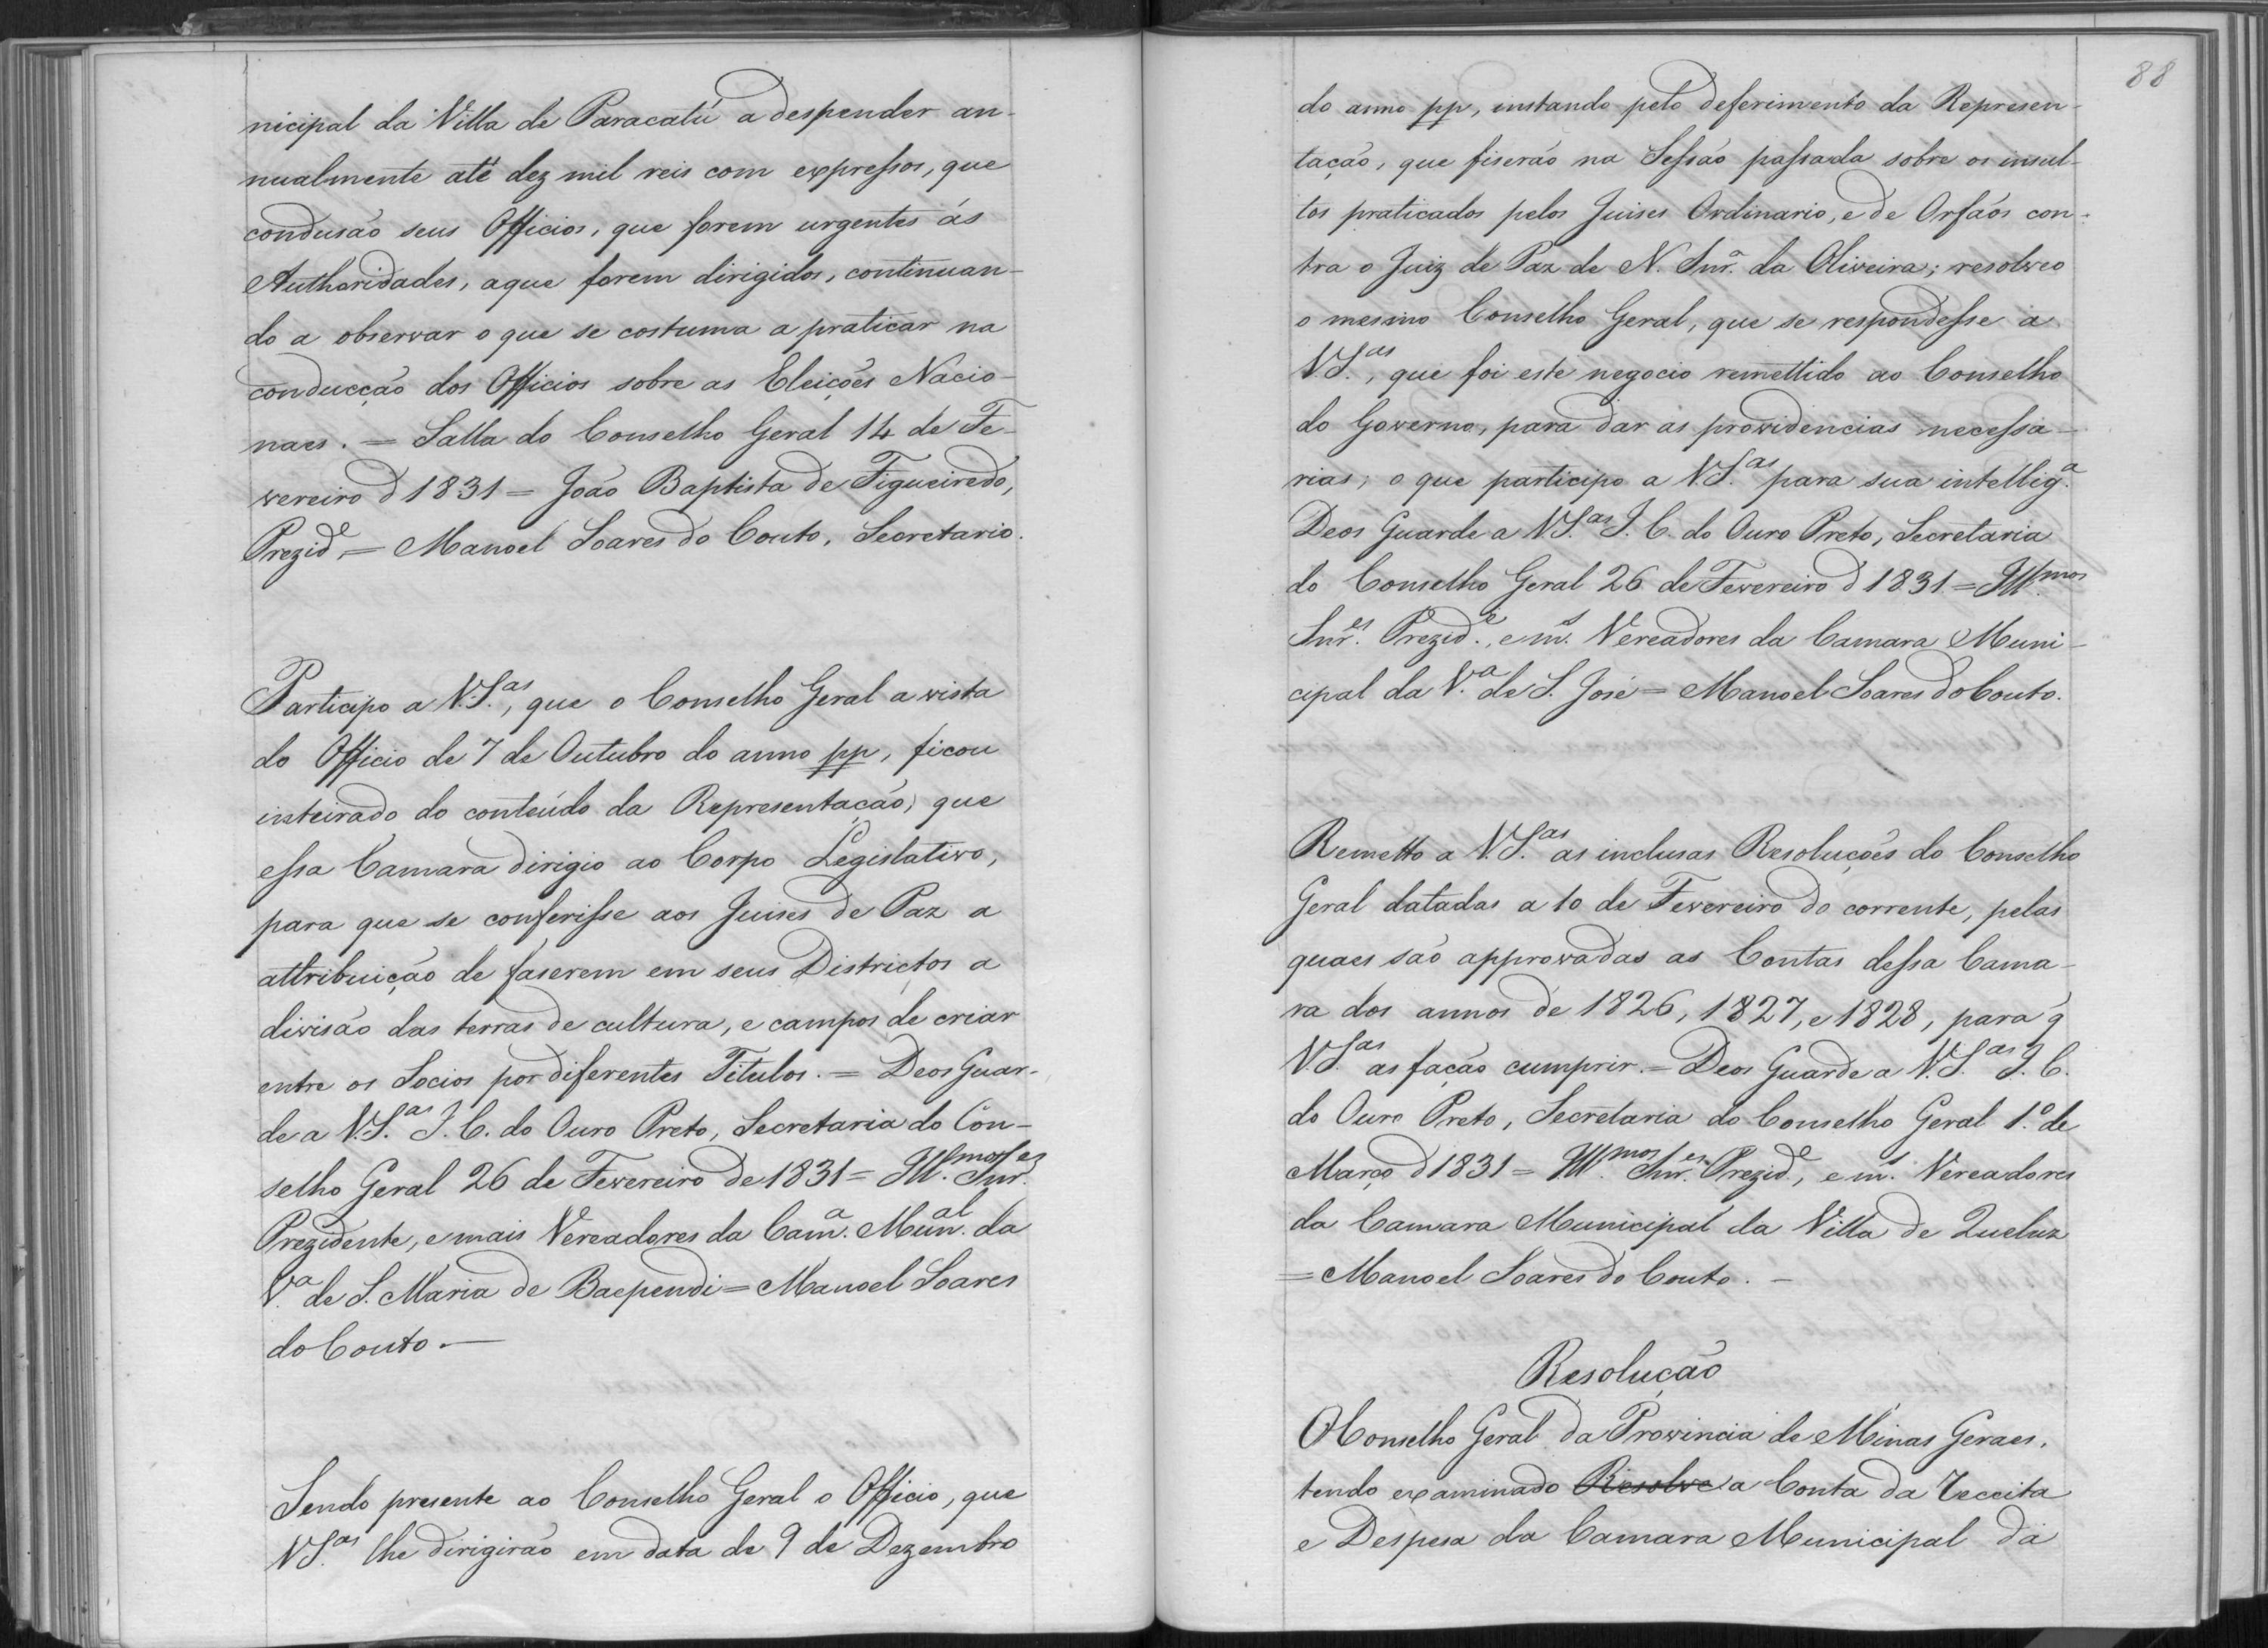 nicipal da Villa de Paracatú a despender an-
nualmente até dez mil reis com expressos, que
condusão seus Officios, que forem urgentes ás
Authoridades, aque forem dirigidos, continuan-
do a observar o que se costuma a praticar na
conducção dos Officios sobre as Eleições Nacio-
naes. = Salla do Conselho Geral 14 de Fe-
vereiro d 1831 = João Baptista de Figueiredo,
Prezid.e = Manoel Soares do Couto, Secretario.
Participo a V.S.as, que o Conselho Geral a vista
do Officio de 7 de Outubro do anno pp, ficou
inteirado do conteúdo da Representação, que
essa Camara dirigio ao Corpo Legislativo,
para que se conferisse aos Juises de Paz a
attribuição de faserem em seus Districtos a
divisão das terras de cultura, e campos de criar
entre os Socios por diferentes Titulos. = Deos Guar-
de a V.S.as I. C. do Ouro Preto, Secretaria do Con-
selho Geral 26 de Fevereiro de 1831 = Ill.mos Snr.es
Prezidente, e mais Vereadores da Cam.a Mun.al da
V.a de S. Maria de Baependi = Manoel Soares
do Couto. —
Sendo presente ao Conselho Geral o Officio, que
V.S.as lhe dirigirão em data de 9 de Dezembro
88
do anno pp, instando pelo deferimento da Represen-
tação, que fiserão na Sessão passada sobre os insul-
tos praticados pelos Juises Ordinario, e de Orfãos con-
tra o Juiz de Paz de N. Snr.a da Oliveira; resolveo
o mesmo Conselho Geral, que se respondesse a
V.S.as, que foi este negocio remettido ao Conselho
do Governo, para dar as providencias necessa-
rias; o que participo a V.S.as para sua intellig.a
Deos Guarde a V.S.as I. C. do Ouro Preto, Secretaria
do Conselho Geral 26 de Fevereiro d 1831 = Ill.mos
Snr.es Prezid.e, e m.s Vereadores da Camara Muni-
cipal da V.a de S. José = Manoel Soares do Couto.
Remetto a V.S.as as inclusas Resoluções do Conselho
Geral datadas a 10 de Fevereiro do corrente, pelas
quaes são approvadas as Contas dessa Cama-
ra dos annos de 1826, 1827, e 1828, para q
V.S.as as fação cumprir. = Deos Guarde a V.S.as I. C.
do Ouro Preto, Secretaria do Conselho Geral 1.o de
Março d 1831 = Ill.mos Snr.es Prezid.e, e m.s Vereadores
da Camara Municipal da Villa de Queluz
= Manoel Soares do Couto. —
Resolução
O Conselho Geral da Provincia de Minas Geraes,
tendo examinado Resolve a Conta da Receita
e Despesa da Camara Municipal da